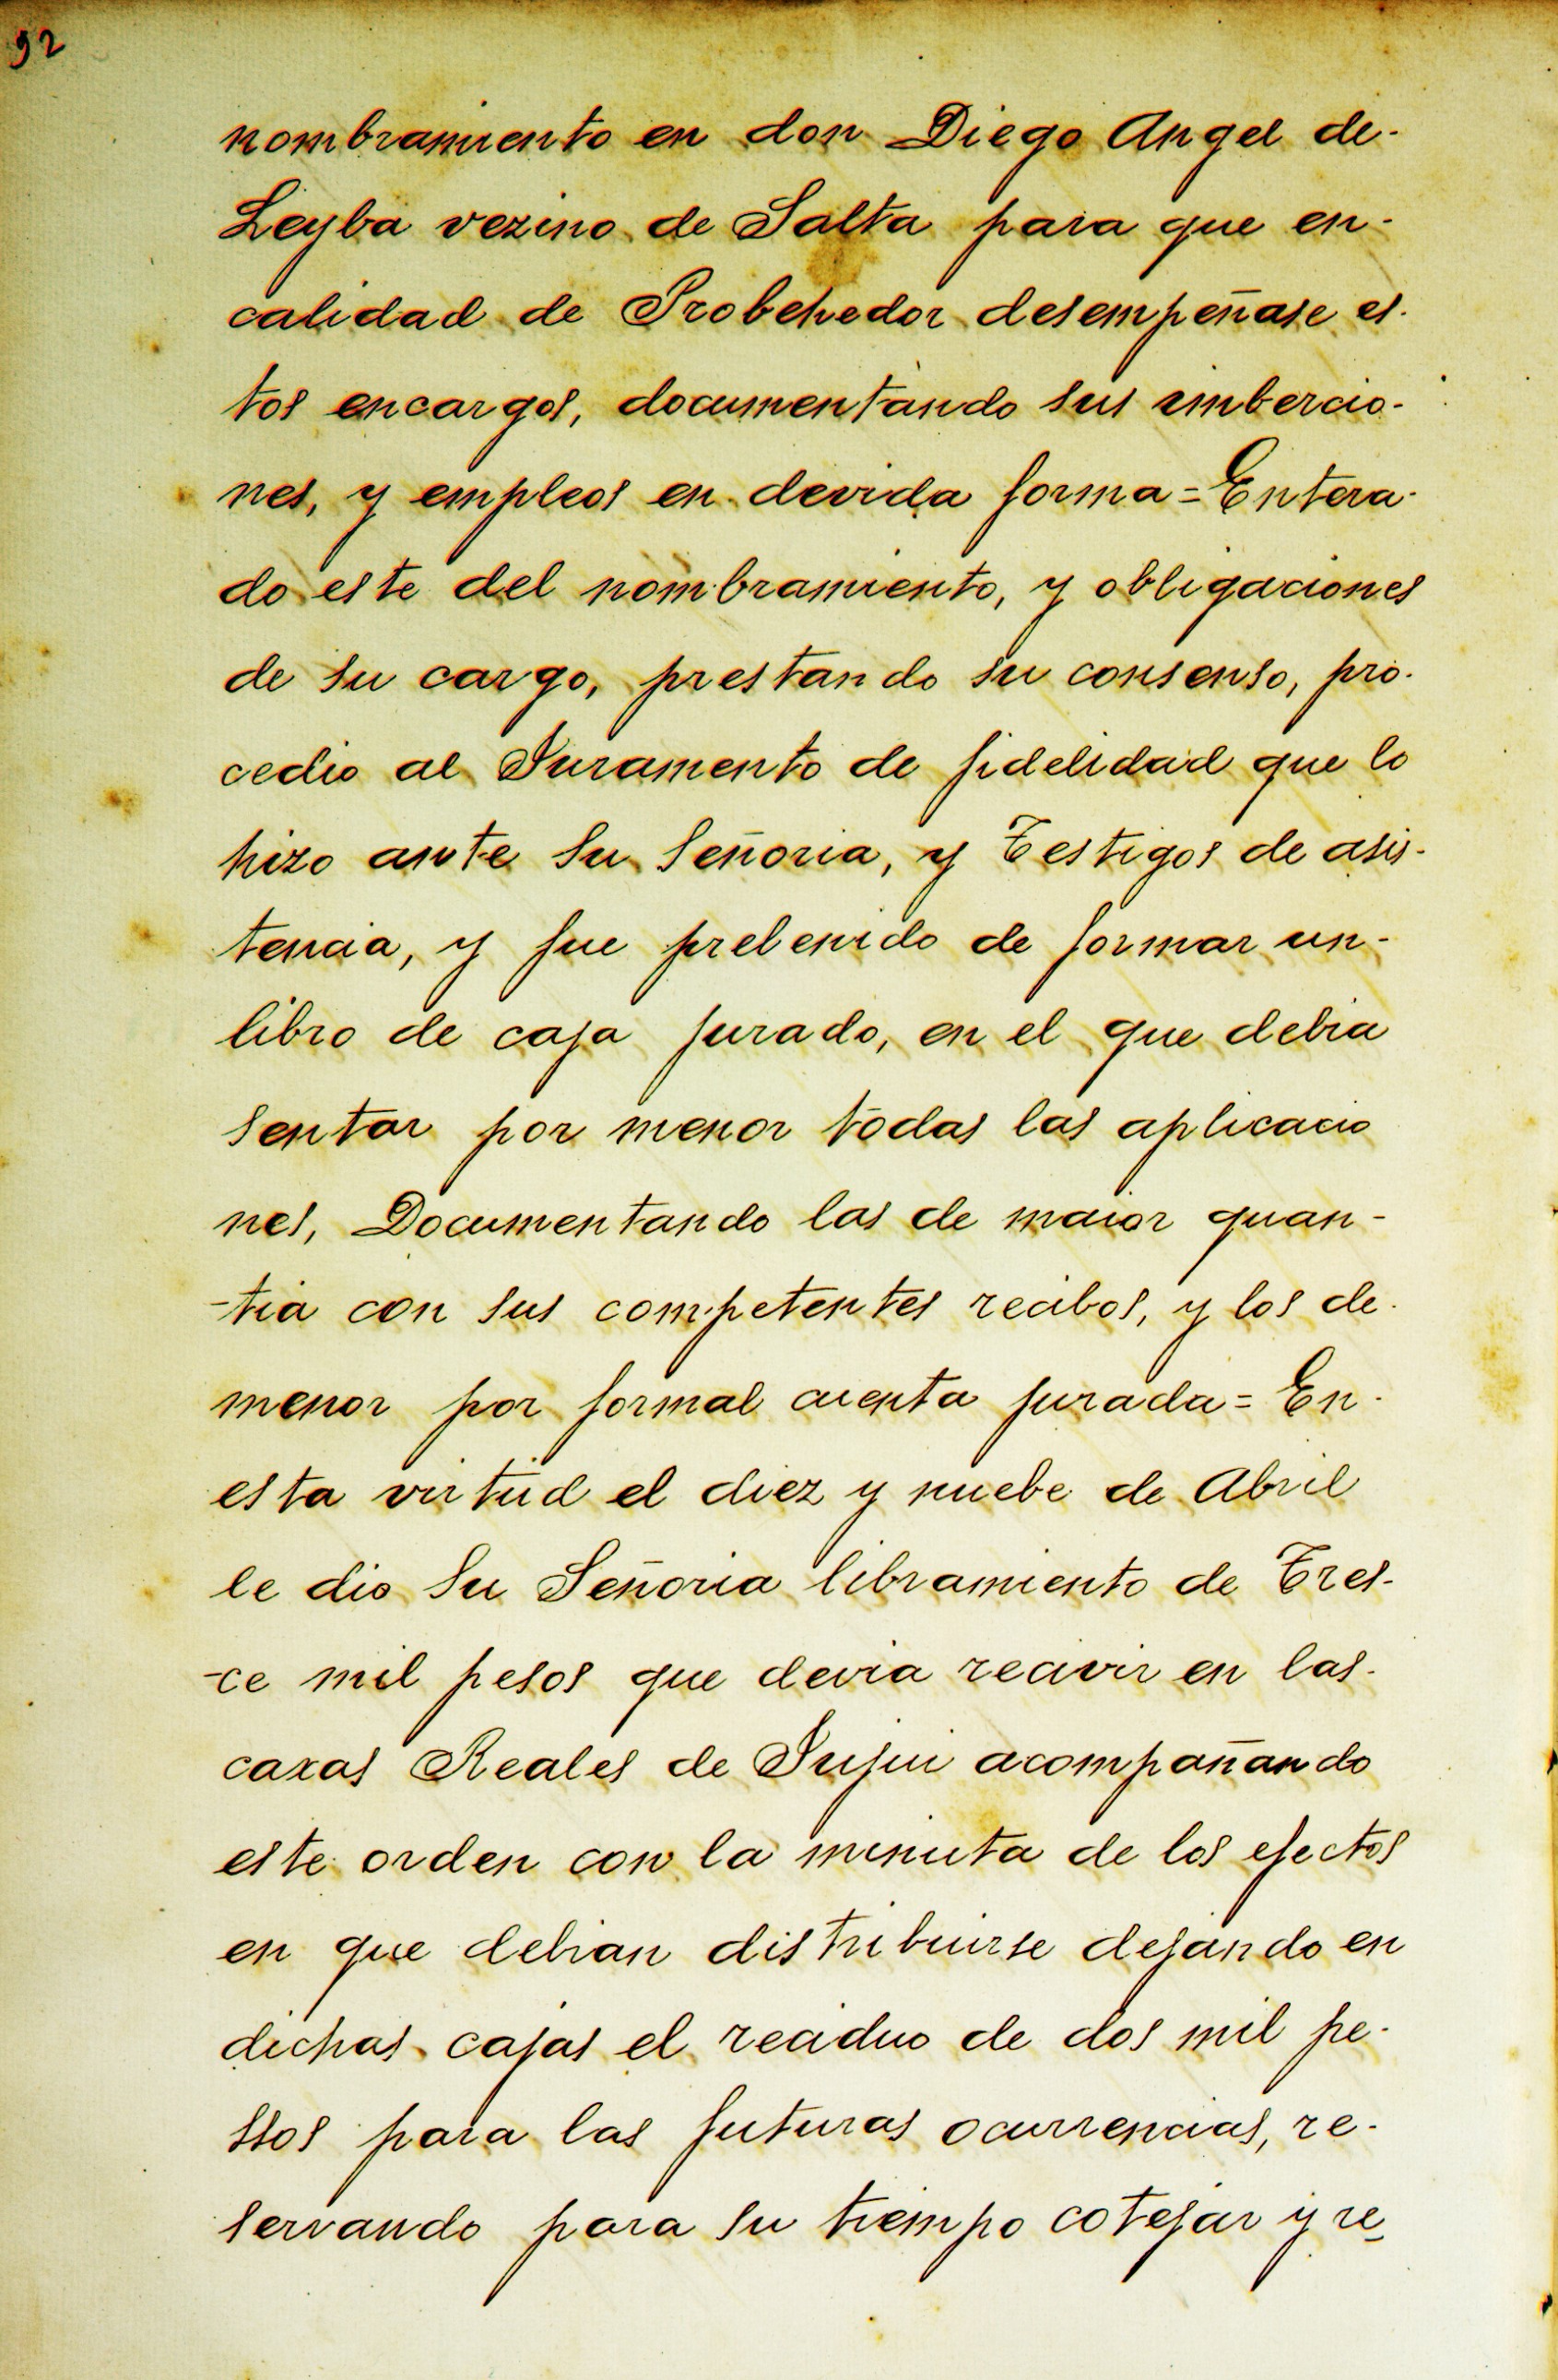 92
nombramiento en don Diego Angel de-
Leyba vezino de Salta para que en-
calidad de Probehedor desempeñase es-
tos encargos, documentando sus imbercio-
nes, y empleos en devida forma = Entera-
do este del nombramiento, y obligaciones
de su cargo, prestando su consenso, pro-
cedio al Juramento de fidelidad que lo
hizo ante Su Señoria, y Testigos de asis-
tencia, y fue prebenido de formar un-
libro de caja jurado, en el que debia
sentar por menor todas las aplicacio
nes, Documentando las de maior quan-
-tia con sus competentes recibos, y los de-
menor por formal cuenta jurada = En-
esta virtud el diez y nuebe de Abril
le dio Su Señoria libramiento de Tres-
-ce mil pesos que devia recivir en las-
caxas Reales de Jujui acompañando
este orden con la minuta de los efectos
en que debian distribuirse dejando en
dichas cajas el reciduo de dos mil pe-
ssos para las futuras ocurrencias, re-
servando para su tiempo cotejar y re-